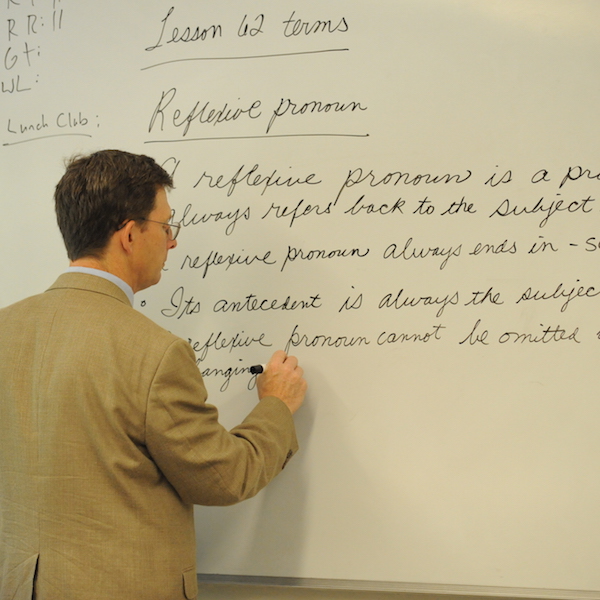 R R: 11
G t:
WL:
Lunch Club:
Lesson 62 terms
Reflexive pronoun
A reflexive pronoun is a pr
always refers back to the subject
reflexive pronoun always ends in - s
• Its antecedent is always the subjec
reflexive pronoun cannot be omitted
anging